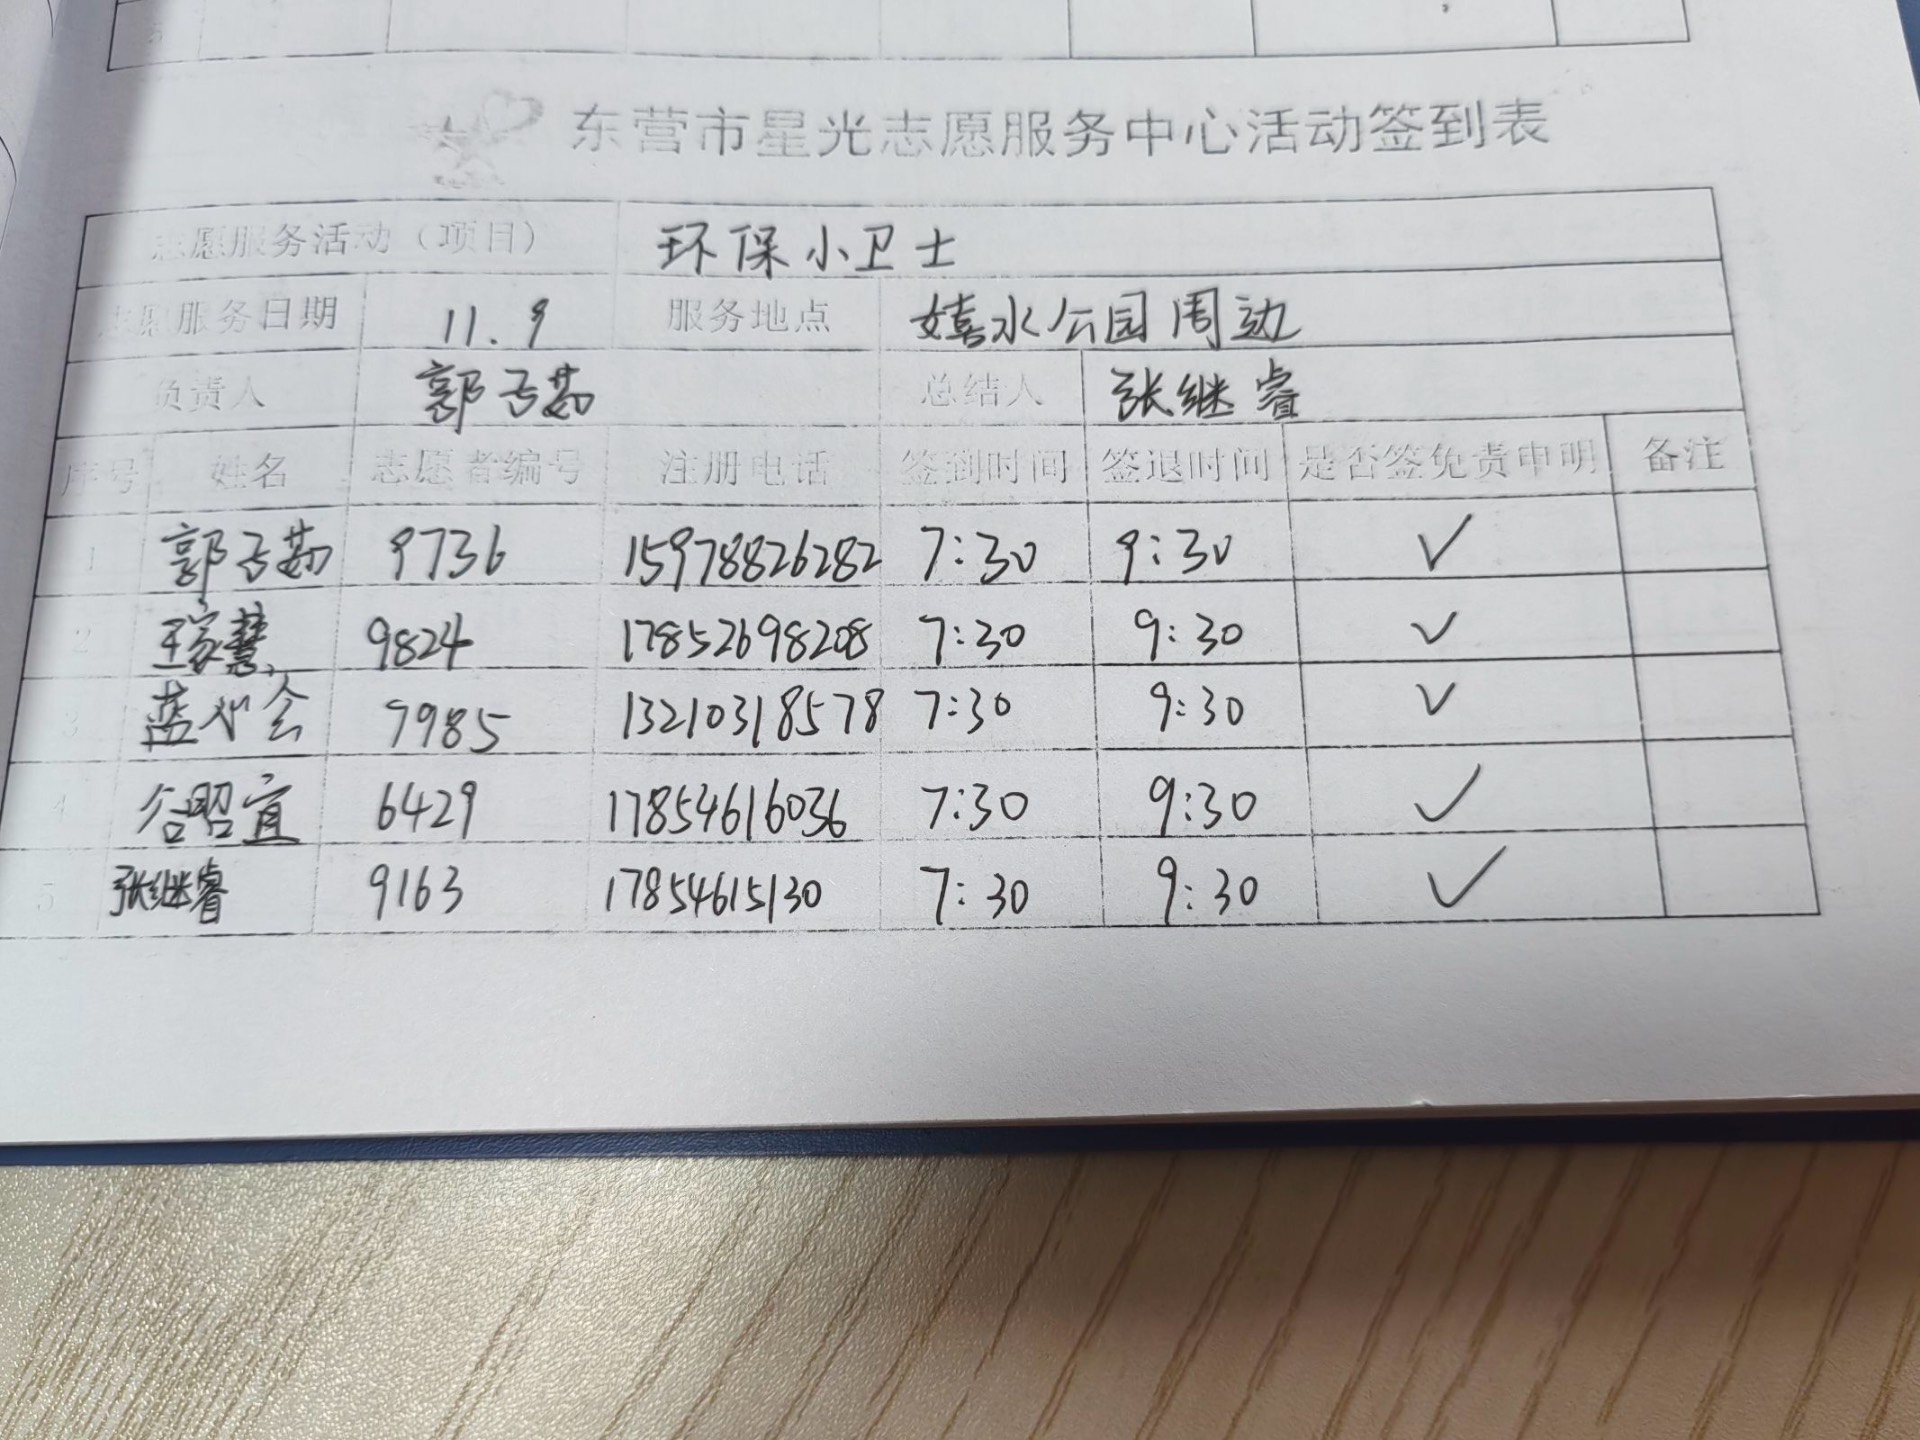 东营市星光志愿服务中心活动签到表
志愿服务活动（项目） 环保小卫士
志愿服务日期 11.9 服务地点 嬉水公园周边
负责人 郭子茹 总结人 张继睿
序号 姓名 志愿者编号 注册电话 签到时间 签退时间 是否签免责申明 备注
1 郭子茹 9736 15978826282 7:30 9:30 ✓
2 9824 17852698208 7:30 9:30 ✓
3 7985 13210318578 7:30 9:30 ✓
4 谷昭宜 6429 17854616036 7:30 9:30 ✓
5 张继睿 9163 17854615130 7:30 9:30 ✓